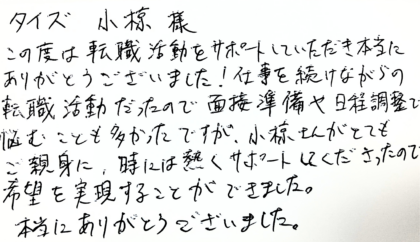 タイズ 小椋 様
この度は転職活動をサポートしていただき本当に
ありがとうございました！仕事を続けながらの
転職活動だったので面接準備や日程調整で
悩むことも多かったですが、小椋さんがとても
ご親身に、時には熱くサポートしてくださったので
希望を実現することができました。
本当にありがとうございました。